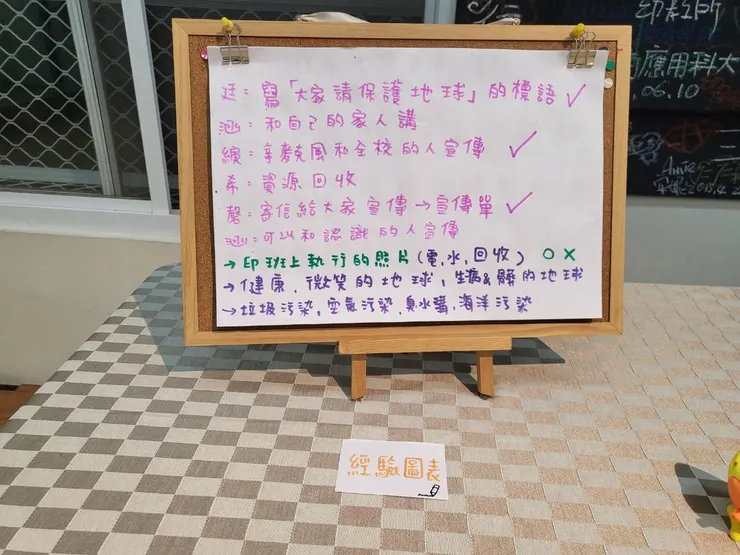 印教所
應用科大
.06.10
廷：寫「大家請保護地球」的標語 ✓
涵：和自己的家人講
線：拿麥克風和全校的人宣傳 ✓
希：資源回收
馨：寄信給大家宣傳→宣傳單 ✓
涵：可以和認識的人宣傳
→印班上執行的照片(電,水,回收) O X
→健康、微笑的地球,生病&髒的地球
→垃圾污染,空氣污染,臭水溝,海洋污染
經驗圖表